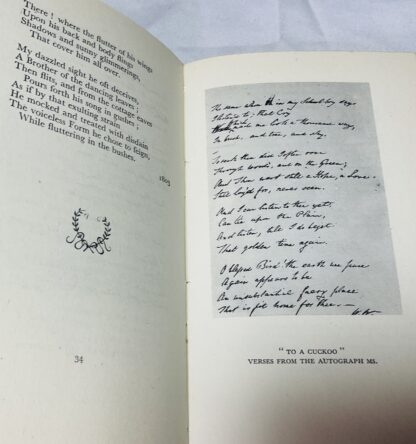 There! where the flutter of his wings
Upon his back and body flings
Shadows and sunny glimmerings,
That cover him all over.
My dazzled sight he oft deceives,
A Brother of the dancing leaves;
Then flits, and from the cottage eaves
Pours forth his song in gushes;
As if by that exulting strain
He mocked and treated with disdain
The voiceless Form he chose to feign,
While fluttering in the bushes.
1803
34
The same whom in my School-boy days
I listen'd to; that Cry
made me look a thousand ways,
In bush, and tree, and sky.
To seek thee did I often rove
Through Woods, and on the Green;
And Thou wert still a Hope, a Love
Still long'd for, never seen.
And I can listen to thee yet;
Can lie upon the Plain,
And listen, till I do beget
That golden time again.
O blessed Bird! the earth we pace
Again appears to be
An unsubstantial faery place
That is fit home for thee. —
W. W.
"TO A CUCKOO"
VERSES FROM THE AUTOGRAPH MS.